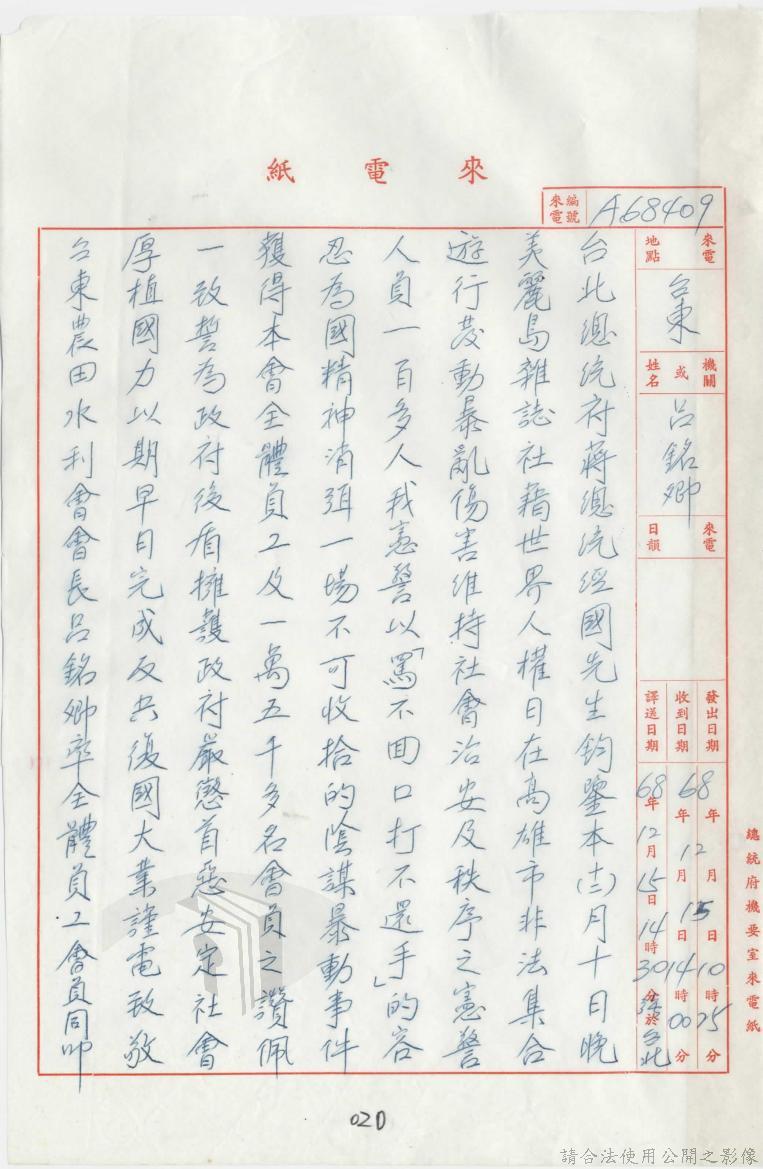 來電紙
來電編號 A68409
來電地點 台東
機關或姓名 呂銘卿
來電日韻
發出日期 68年12月15日10時25分
收到日期 68年12月15日14時00分
譯送日期 68年12月15日14時30分譯於台北
台北總統府蔣總統經國先生鈞鑒本(十二)月十日晚
美麗島雜誌社藉世界人權日在高雄市非法集合
遊行發動暴亂傷害維持社會治安及秩序之憲警
人員一百多人我憲警以「罵不回口打不還手」的容
忍為國精神消弭一場不可收拾的陰謀暴動事件
獲得本會全體員工及一萬五千多名會員之讚佩
一致誓為政府後盾擁護政府嚴懲首惡安定社會
厚植國力以期早日完成反共復國大業謹電致敬
台東農田水利會會長呂銘卿率全體員工會員同叩
總統府機要室來電紙
020
請合法使用公開之影像